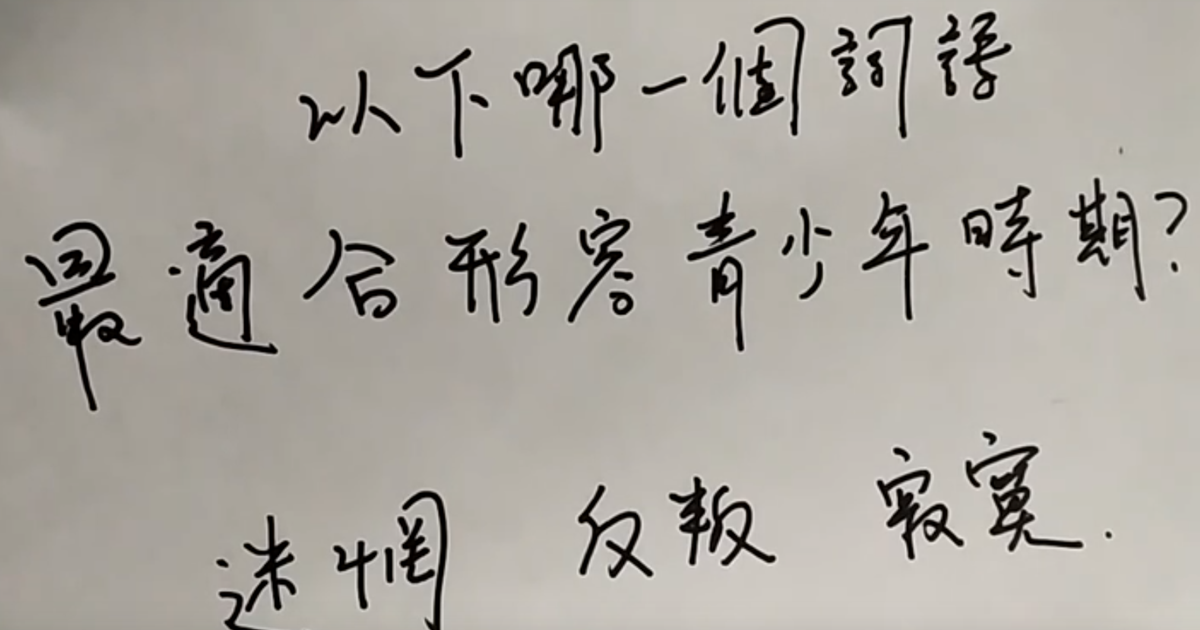 以下哪一個詞語
最適合形容青少年時期?
迷惘 反叛 寂寞.